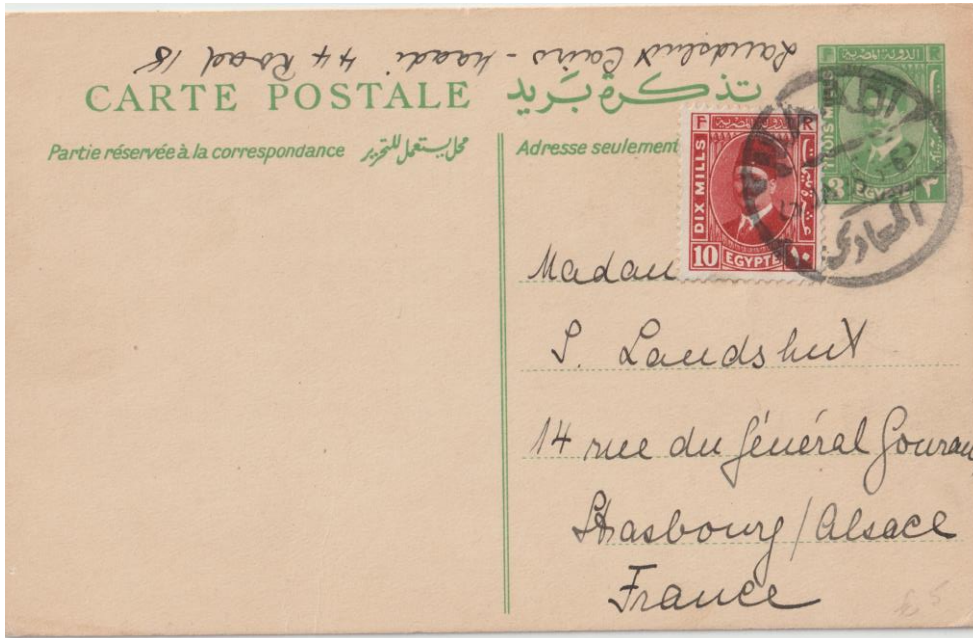 Landshut Cairo - Maadi 44 Road 18
CARTE POSTALE تذكرة بريد
Partie réservée à la correspondance محل يستعمل للتحرير
Adresse seulement
F R
DIX MILLS
10 EGYPTE ١٠
R
الدولة المصرية
TROIS MILLS
3 EGYPTE ٣
المعادي
Madam
S. Landshut
14 rue du Général Gourau
Strasbourg / Alsace
France